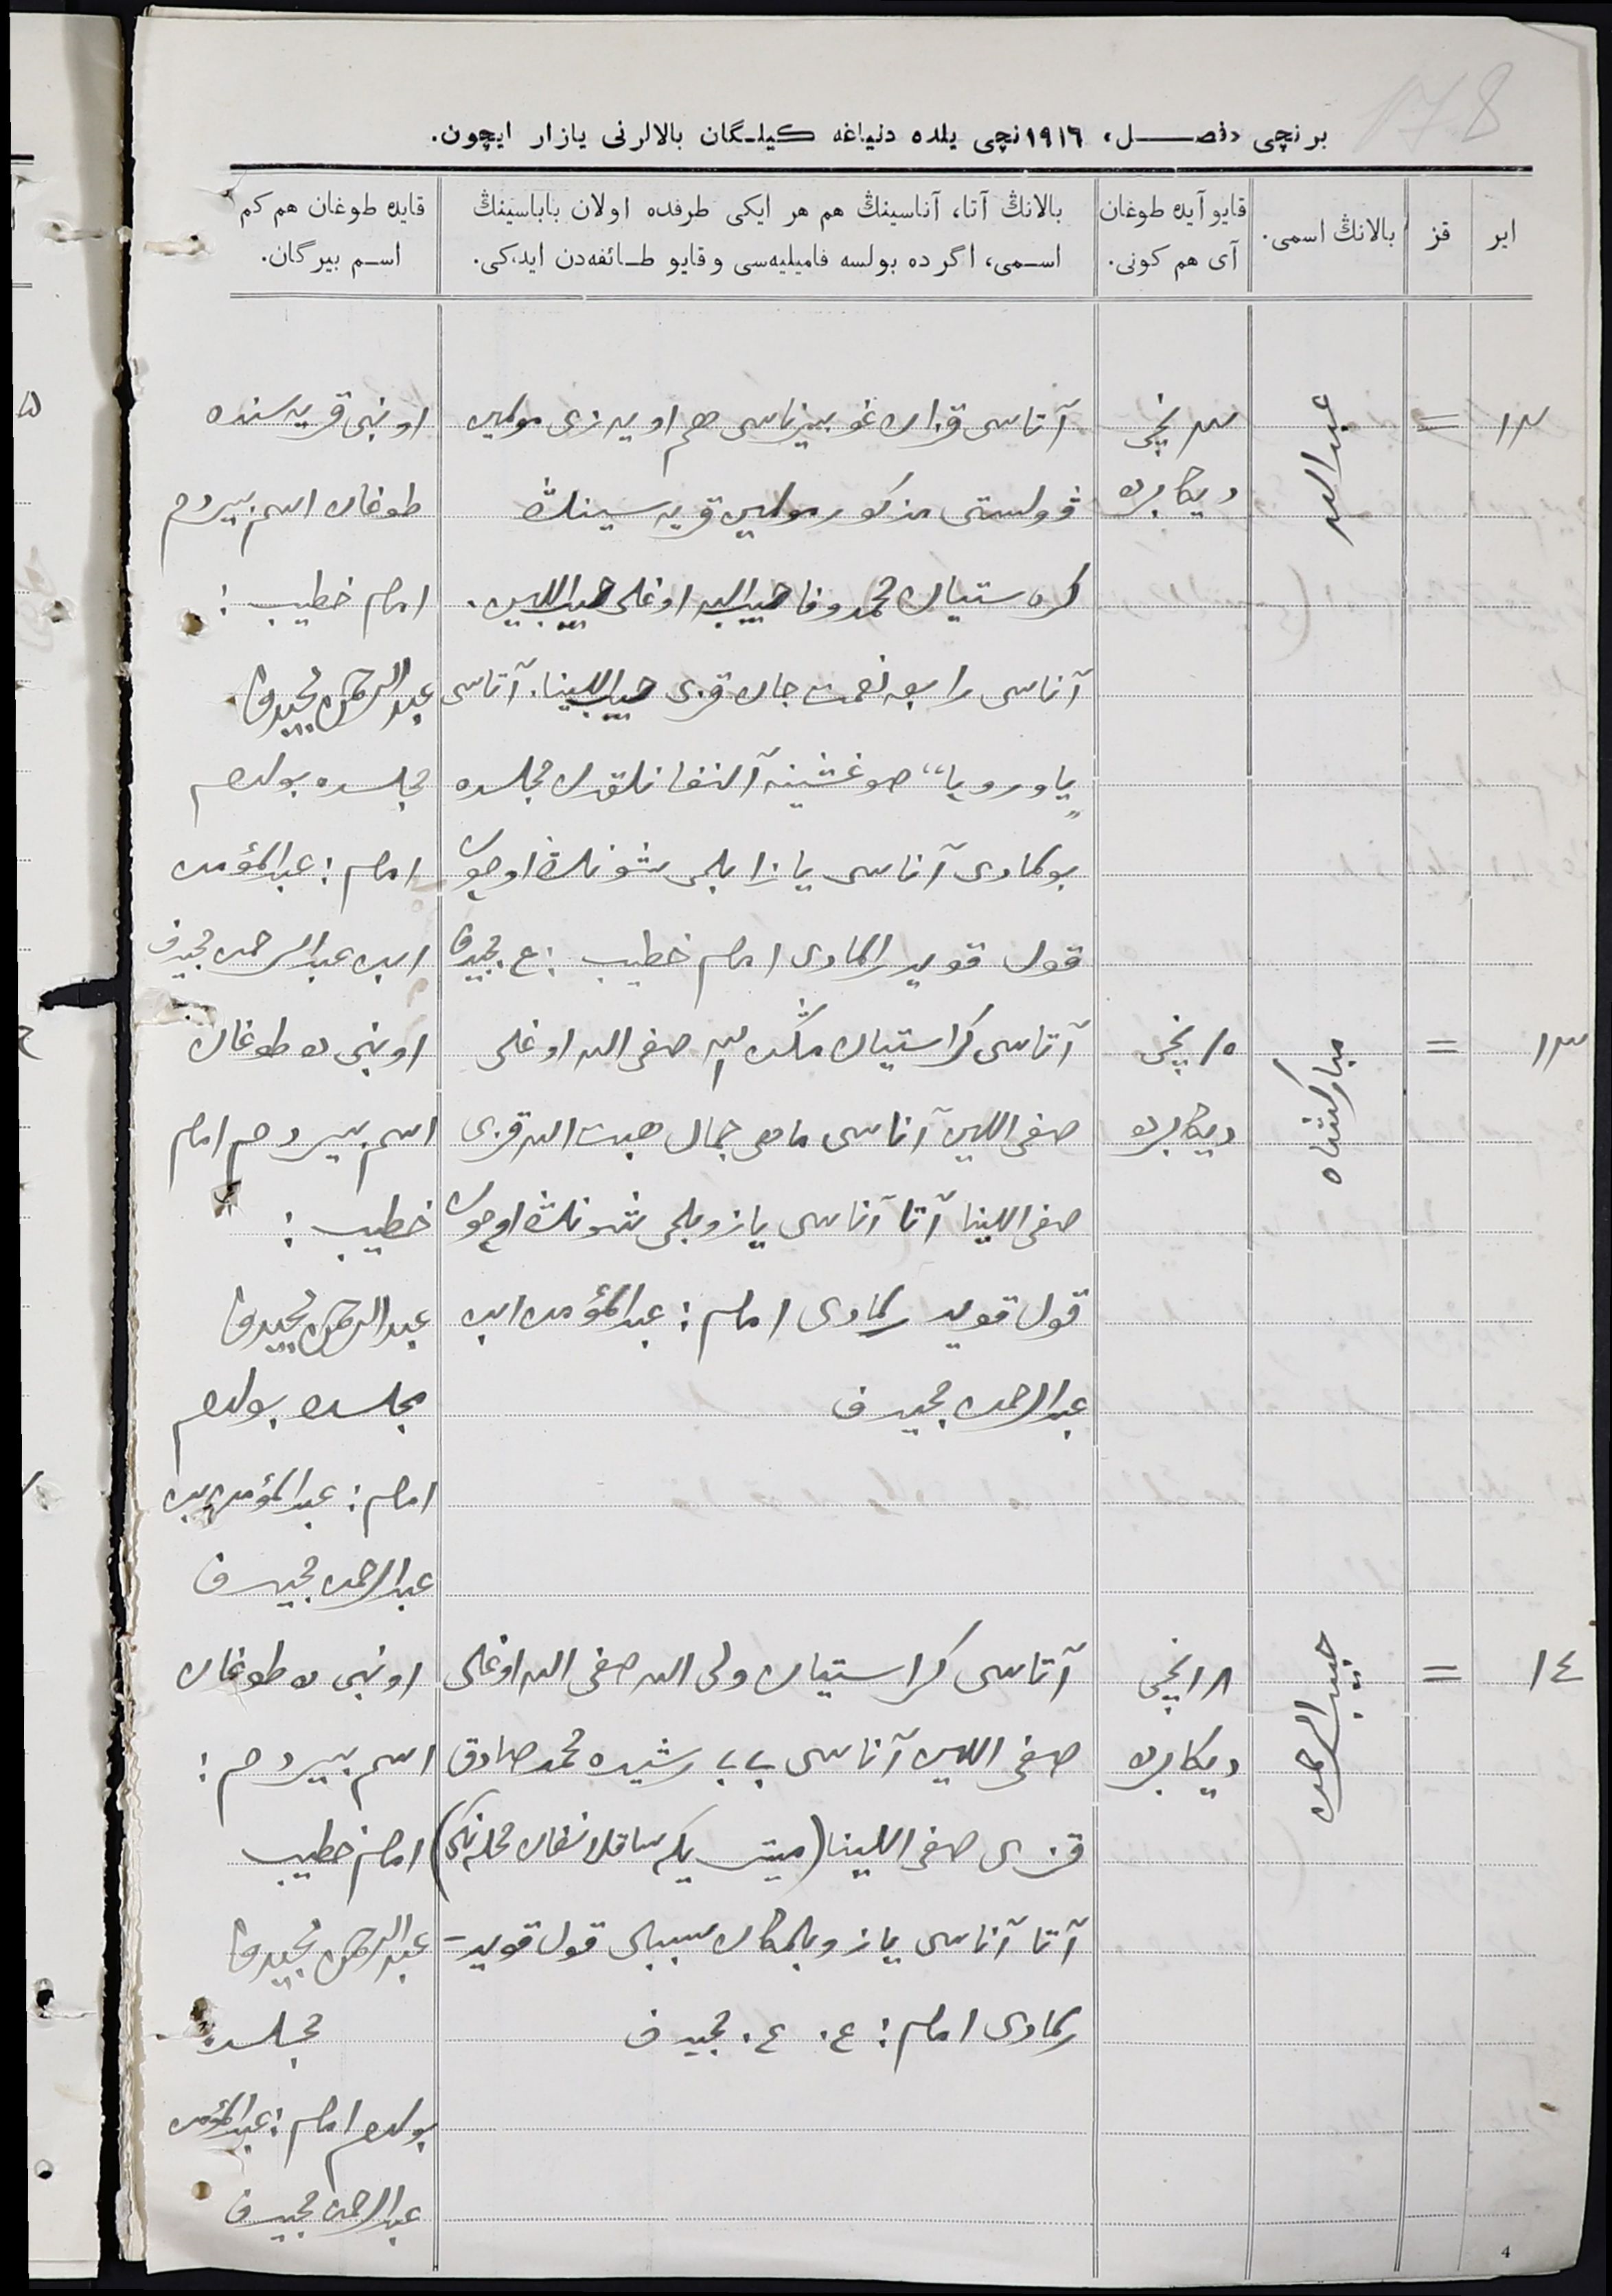 178
برنچی «فصل»، ١٩١٦نچی یلده دنیاغه کیلگان بالالرنی یازار ایچون.
ایر
قز
بالانڭ اسمی.
قایو آیده طوغان
آی هم کونی.
بالانڭ آتا، آناسینڭ هم هر ایکی طرفده اولان باباسینڭ
اسمی، اگرده بولسه فامیلیه‌سی و قایو طائفه‌دن ایدکی.
قایده طوغان هم کم
اسم بیرگان.
١٢
=
عبدالله
٣نچی
دیکابرده
آتاسی قزان غوبیرناسی هم اویه‌زی
ڤولستی مذکور قریه سینڭ
کره‌ستیان محمدوفا حبیب‌الله اوغلی حبیب‌اللین.
آناسی رابعه نعمت جان قزی حبیب‌اللینا. آتاسی
صوغشینه آلنغانلقدن مجلسده
بولمادی آناسی یازا بلمی شونڭ اوچون
قول قویدرالمادی امام خطیب: ع. مجیدف
اونبی قریه سنده
طوغان اسم بیردم
امام خطیب:
عبدالرحمن مجیدف
مجلسده بولدم
امام: عبدالمؤمن
ابن عبدالرحمن مجیدف
١٣
=
مبارکشاه
١٥نچی
دیکابرده
آتاسی کراستیان صفی الله اوغلی
صفی اللین آناسی ماهی جمال هبت الله قزی
صفی اللینا آتا آناسی یازو بلمی شونڭ اوچون
قول قویدرلمادی امام: عبدالمؤمن ابن
عبدالرحمن مجیدف
اونبی ده طوغان
اسم بیردم امام
خطیب:
عبدالرحمن مجیدف
مجلسده بولدم
امام: عبدالمؤمن بن
عبدالرحمن مجیدف
١٤
=
حبیب الرحمن
١٨نچی
دیکابرده
آتاسی کراستیان ولی الله صفی الله اوغلی
صفی اللین آناسی بی بی رشیده محمد صادق
قزی صفی اللینا (میتریکه ساقلانغان محله‌نکی)
آتا آناسی یازو بلمگان سببلی قول قوید-
رلمادی امام: ع. ع. مجیدف
اونبی ده طوغان
اسم بیردم:
امام خطیب
عبدالرحمن مجیدف
مجلسده
بولدم امام: عبدالمؤمن
عبدالرحمن مجیدف
4